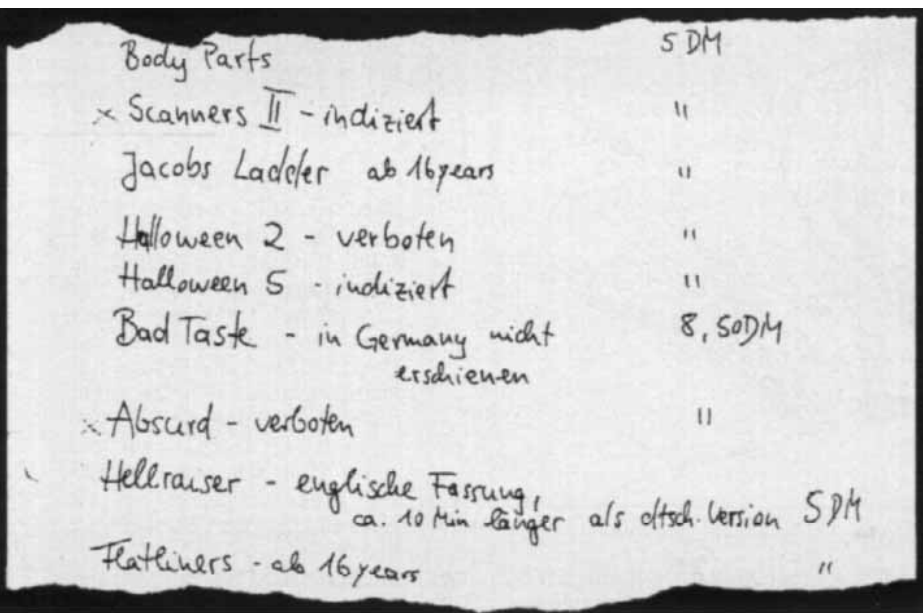 Body Parts 5 DM
x Scanners II - indiziert "
Jacobs Ladder ab 16 years "
Halloween 2 - verboten "
Halloween 5 - indiziert "
Bad Taste - in Germany nicht 8,50DM
erschienen
x Absurd - verboten "
Hellraiser - englische Fassung,
ca. 10 Min länger als dtsch. Version 5 DM
Flatliners - ab 16 years "